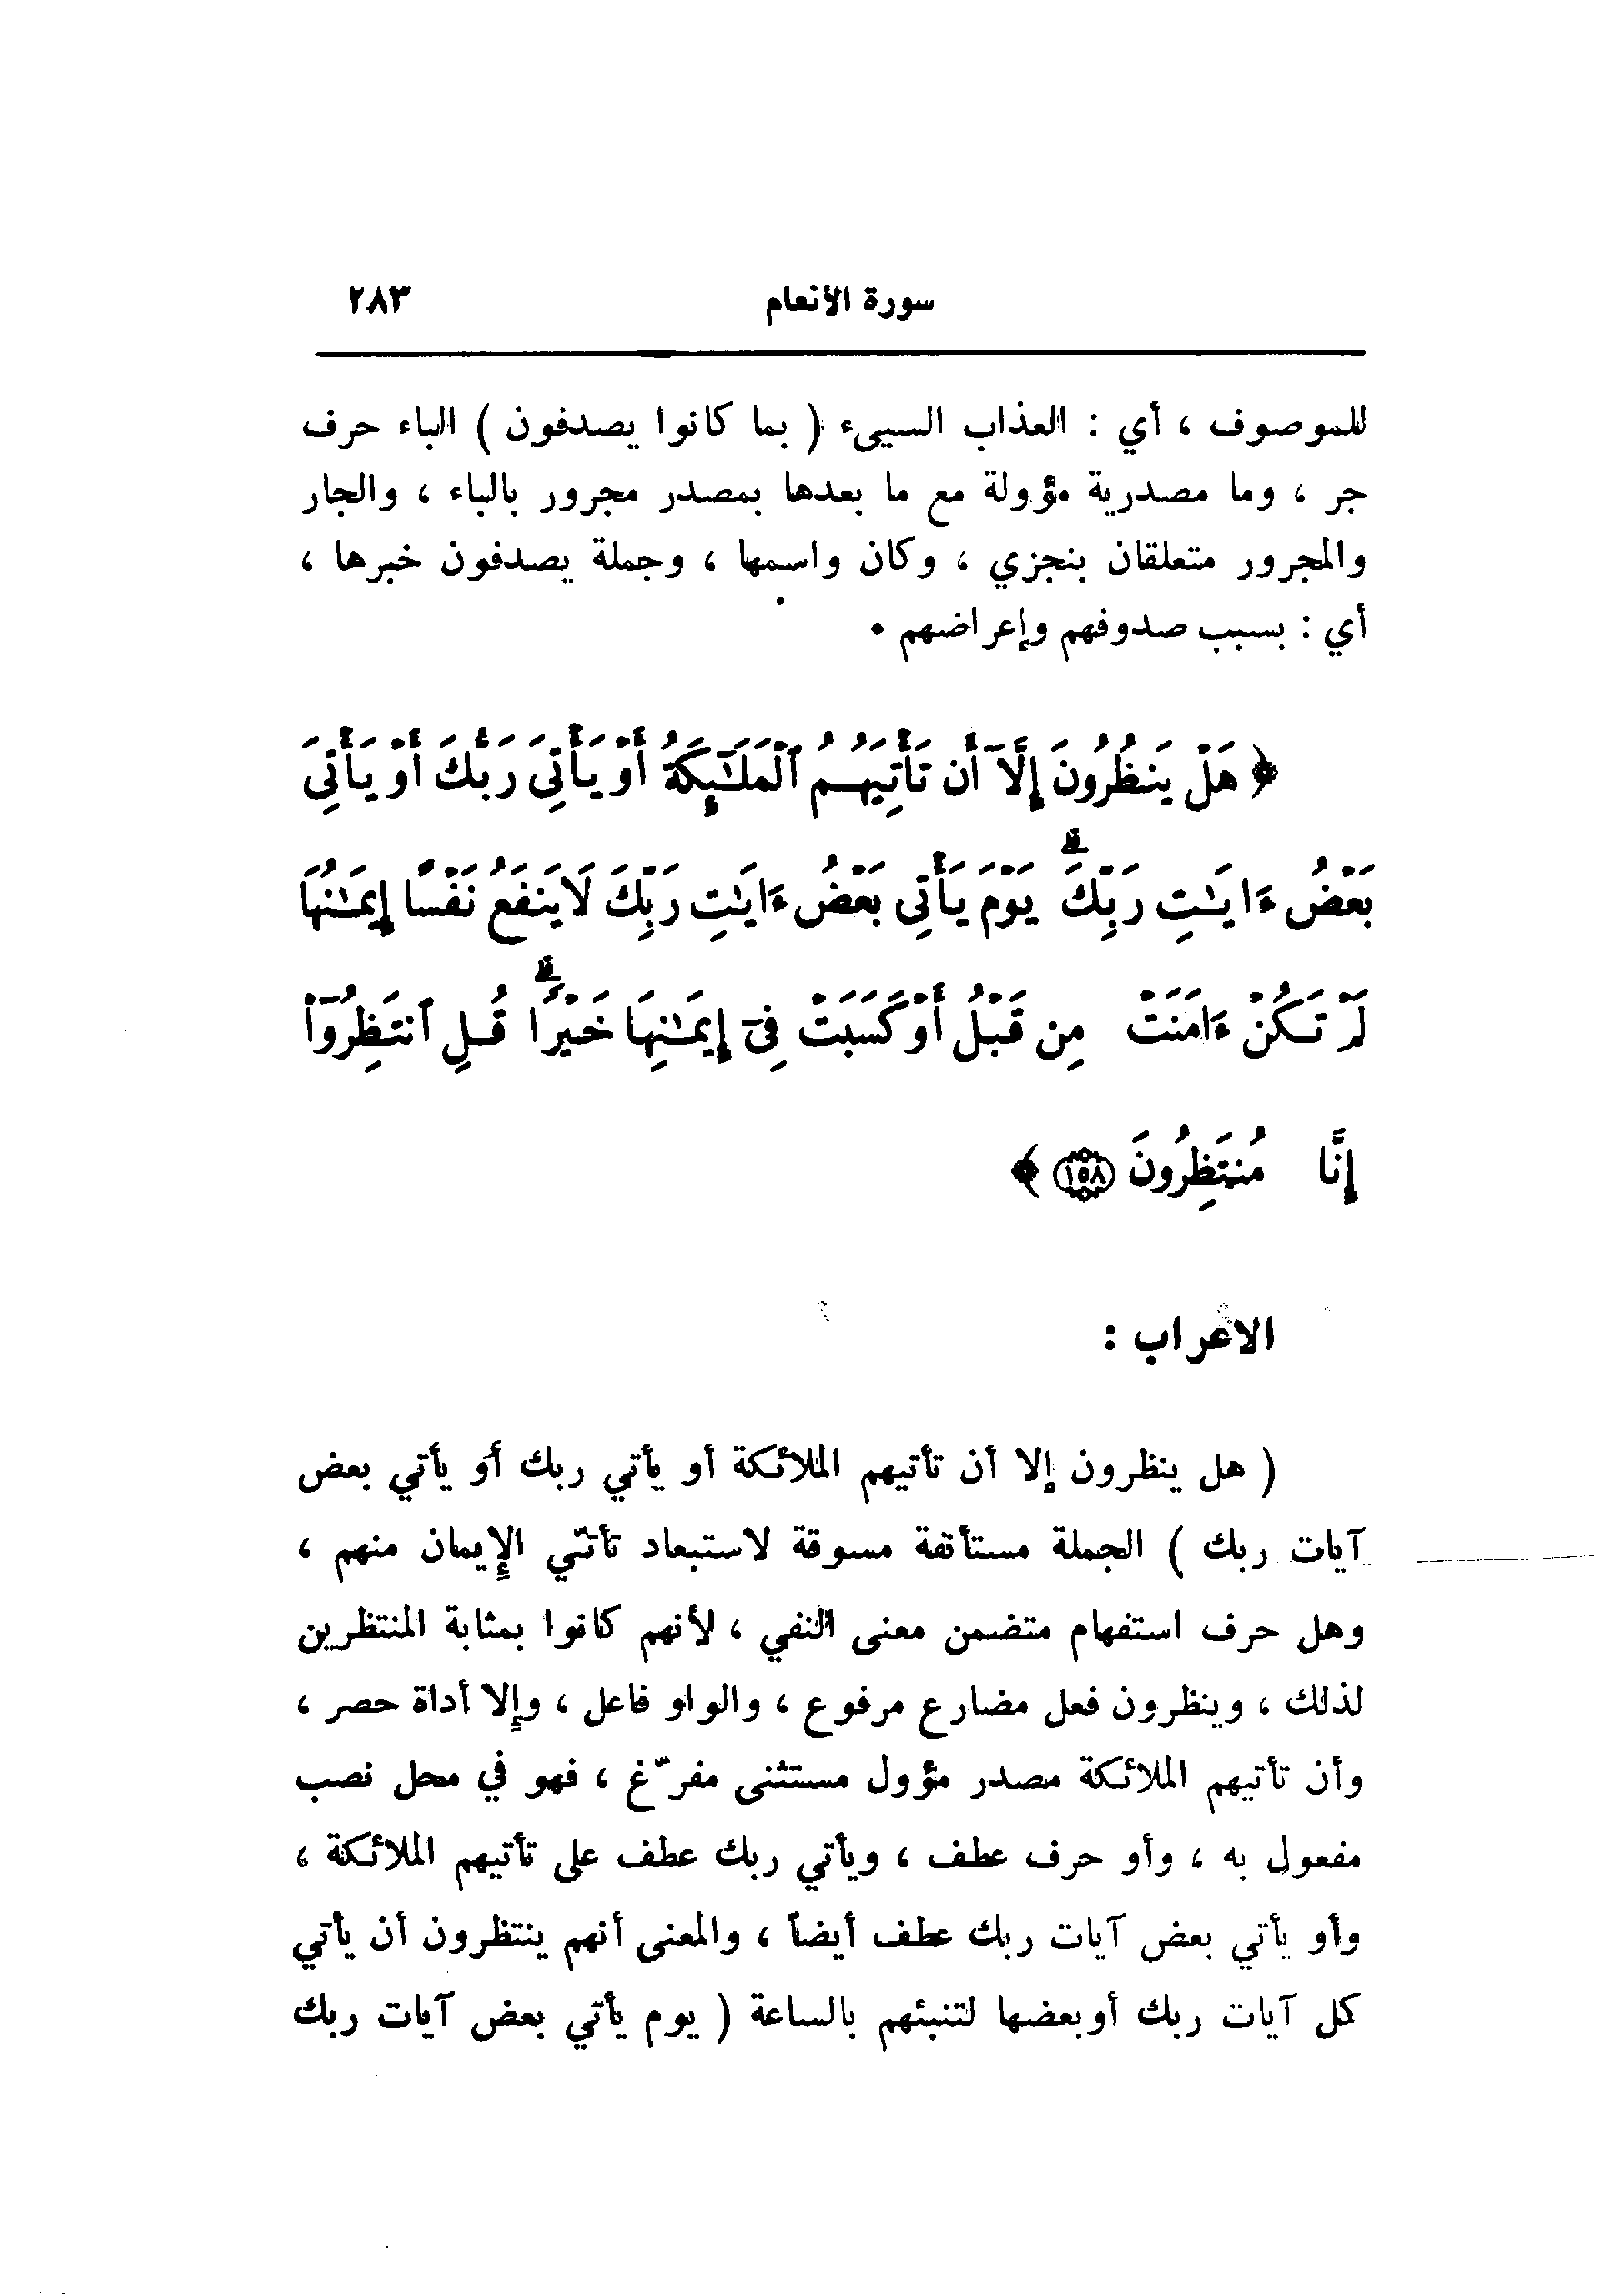 سورة الأنعام ٢٨٣
للموصوف ، أي : العذاب السيىء ( بما كانوا يصدفون ) الباء حرف
جر ، وما مصدرية مؤولة مع ما بعدها بمصدر مجرور بالباء ، والجار
والمجرور متعلقان بنجزي ، وكان واسمها ، وجملة يصدفون خبرها ،
أي : بسبب صدوفهم وإعراضهم .
﴿ هَلْ يَنظُرُونَ إِلَّآ أَن تَأْتِيَهُمُ ٱلْمَلَٰٓئِكَةُ أَوْ يَأْتِىَ رَبُّكَ أَوْ يَأْتِىَ
بَعْضُ ءَايَٰتِ رَبِّكَ ۗ يَوْمَ يَأْتِى بَعْضُ ءَايَٰتِ رَبِّكَ لَا يَنفَعُ نَفْسًا إِيمَٰنُهَا
لَمْ تَكُنْ ءَامَنَتْ مِن قَبْلُ أَوْ كَسَبَتْ فِىٓ إِيمَٰنِهَا خَيْرًا ۗ قُلِ ٱنتَظِرُوٓا۟
إِنَّا مُنتَظِرُونَ ١٥٨ ﴾
الاعراب :
( هل ينظرون إلا أن تأتيهم الملائكة أو يأتي ربك أو يأتي بعض
آيات ربك ) الجملة مستأنفة مسوقة لاستبعاد تأتّي الإيمان منهم ،
وهل حرف استفهام متضمن معنى النفي ، لأنهم كانوا بمثابة المنتظرين
لذلك ، وينظرون فعل مضارع مرفوع ، والواو فاعل ، وإلا أداة حصر ،
وأن تأتيهم الملائكة مصدر مؤول مستثنى مفرّغ ، فهو في محل نصب
مفعول به ، وأو حرف عطف ، ويأتي ربك عطف على تأتيهم الملائكة ،
وأو يأتي بعض آيات ربك عطف أيضاً ، والمعنى أنهم ينتظرون أن يأتي
كل آيات ربك أوبعضها لتنبئهم بالساعة ( يوم يأتي بعض آيات ربك